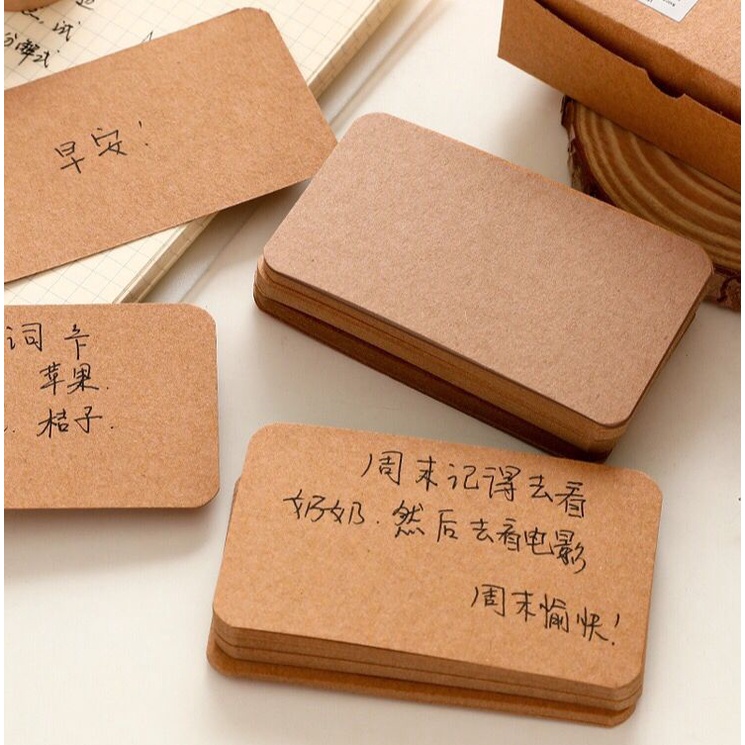 试
分解式
早安!
词卡
苹果.
桔子.
周末记得去看
奶奶.然后去看电影
周末愉快!